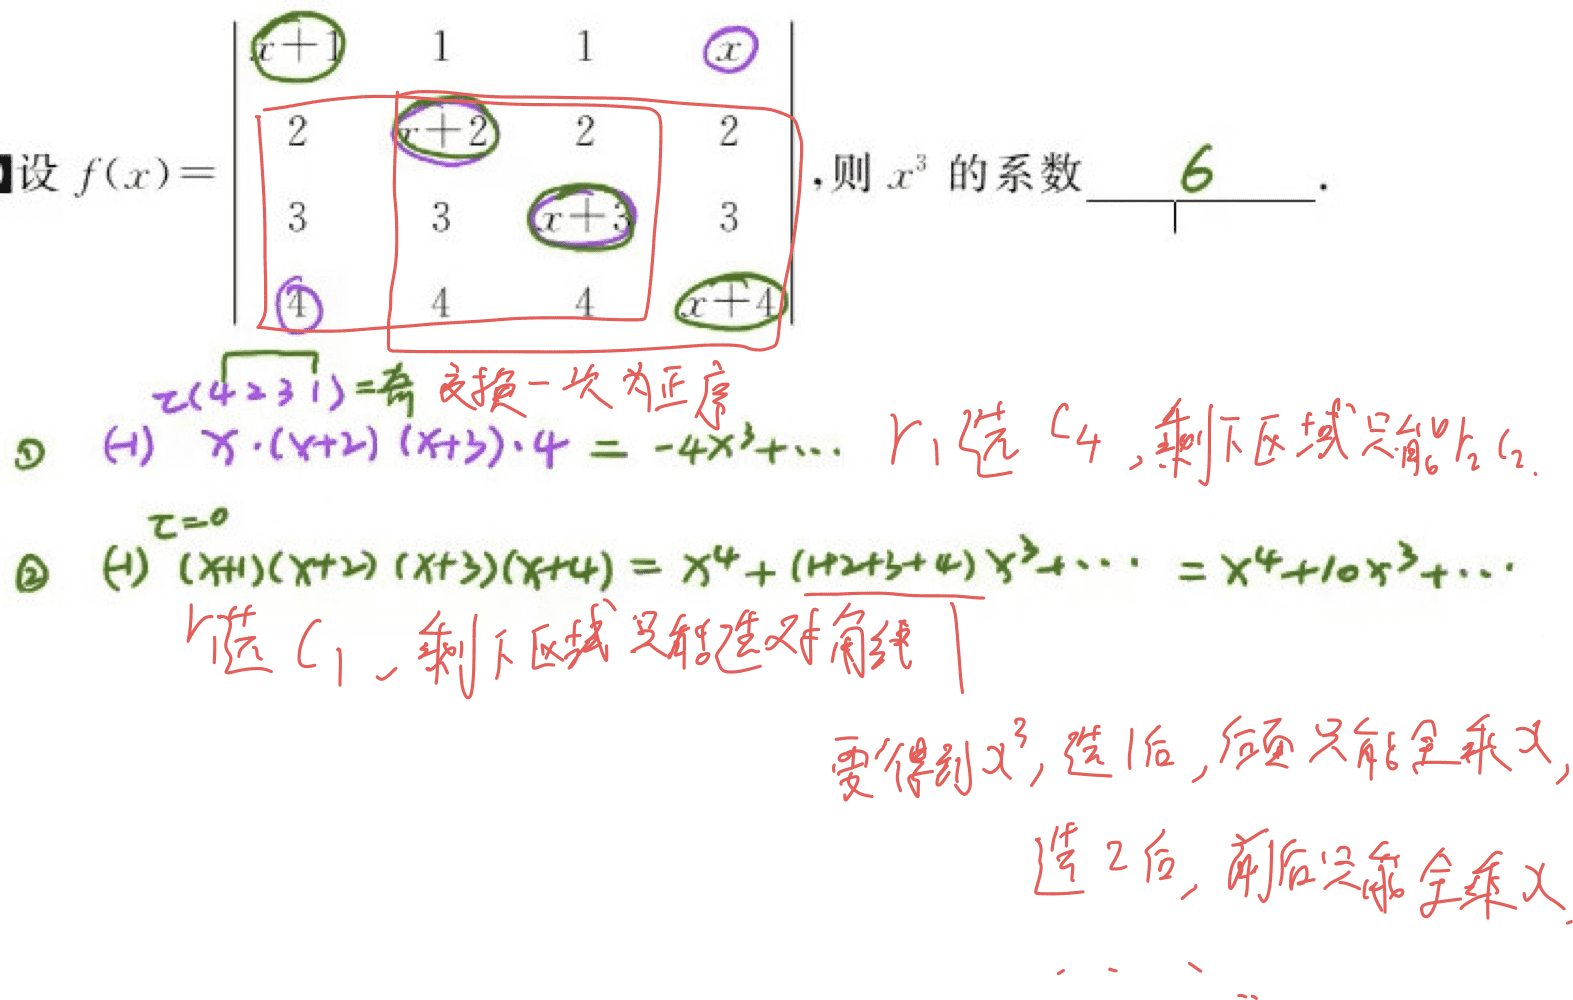 x+1 1 1 x
2 x+2 2 2
设 f(x)= ,则 x³ 的系数 6 .
3 3 x+3 3
4 4 4 x+4
τ(4231)=奇 交换一次为正序
① (-1) x·(x+2)(x+3)·4 = -4x³+… r₁选 C₄,剩下区域只能 r₂C₂.
τ=0
② (-1) (x+1)(x+2)(x+3)(x+4) = x⁴+(1+2+3+4)x³+… = x⁴+10x³+…
r₁选 C₁、剩下区域只能选对角线
要得到x³,选1后,后面只能全乘x,
选2后,前后只能全乘x.